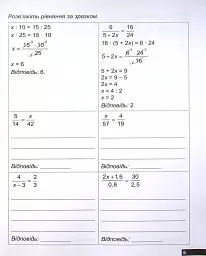 Розв'яжіть рівняння за зразком.
x : 10 = 15 : 25
x · 25 = 15 · 10
x = 15 · 10 / 25
x = 6
Відповідь: 6.
6 / (5 + 2x) = 16 / 24
16 · (5 + 2x) = 6 · 24
5 + 2x = 6 · 24 / 16
5 + 2x = 9
2x = 9 − 5
2x = 4
x = 4 : 2
x = 2
Відповідь: 2.
5 / 14 = x / 42
Відповідь:
x / 57 = 4 / 19
Відповідь:
4 / (x − 3) = 2 / 3
Відповідь:
(2x + 1,6) / 0,8 = 30 / 2,5
Відповідь: